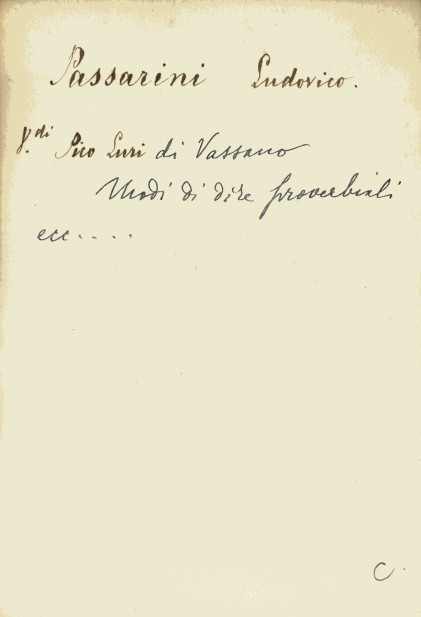 Passarini Ludovico.
V. di Pico Luri di Vassano
Modi di dire proverbiali
ecc....
C.